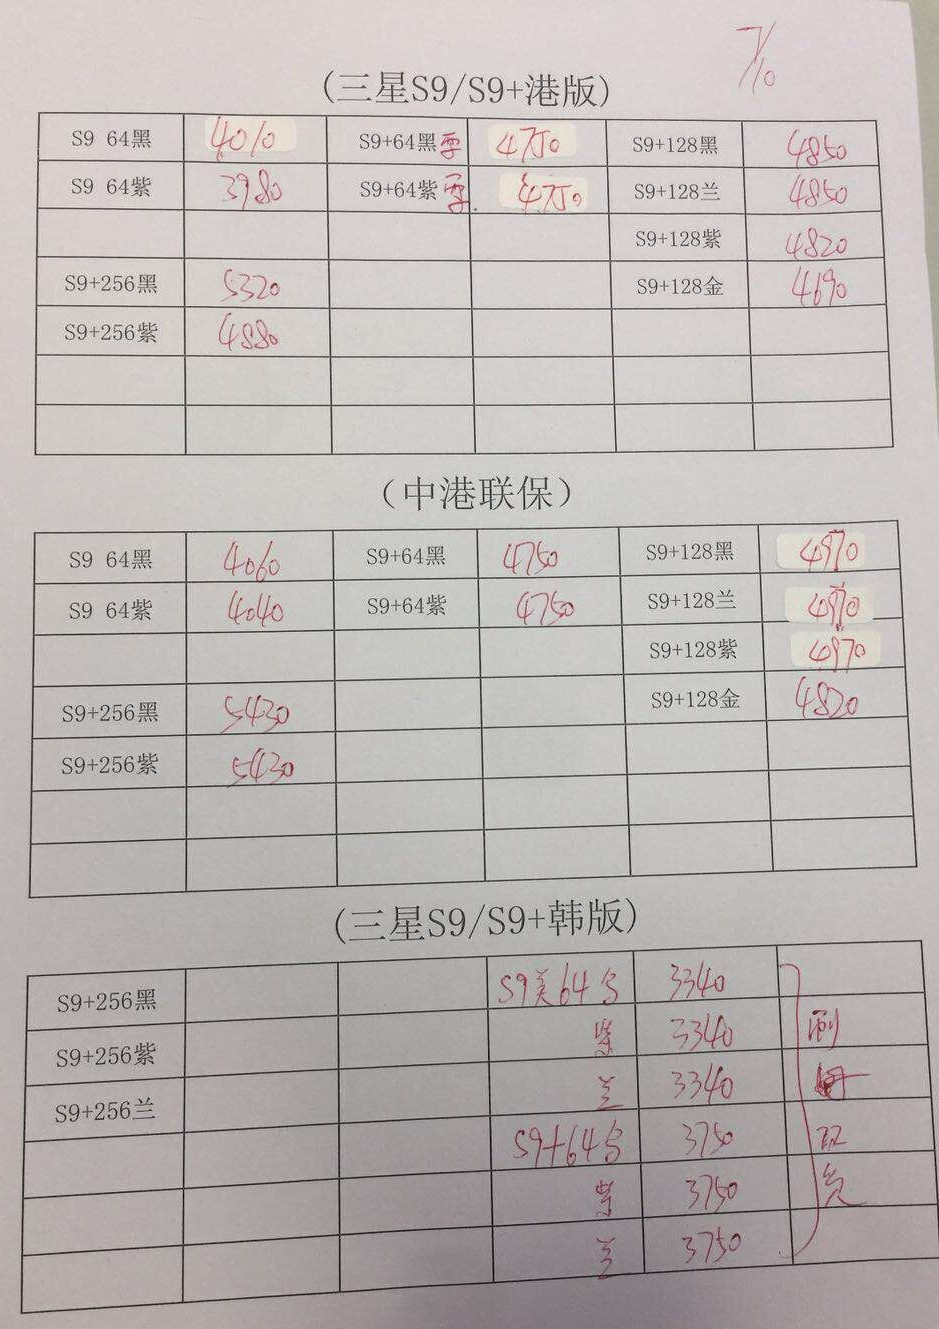 7/10
(三星S9/S9+港版)
S9 64黑 4010 S9+64黑 4750 S9+128黑 4850
S9 64紫 3980 S9+64紫 4750 S9+128兰 4850
S9+128紫 4820
S9+256黑 5320 S9+128金 4690
S9+256紫 4880
（中港联保）
S9 64黑 4060 S9+64黑 4750 S9+128黑 4970
S9 64紫 4040 S9+64紫 4750 S9+128兰 4970
S9+128紫 4970
S9+256黑 5430 S9+128金 4820
S9+256紫 5430
(三星S9/S9+韩版)
S9+256黑 S9美64 3340
S9+256紫 紫 3340 刷
S9+256兰 兰 3340
S9+64 3750 双
紫 3750
兰 3750